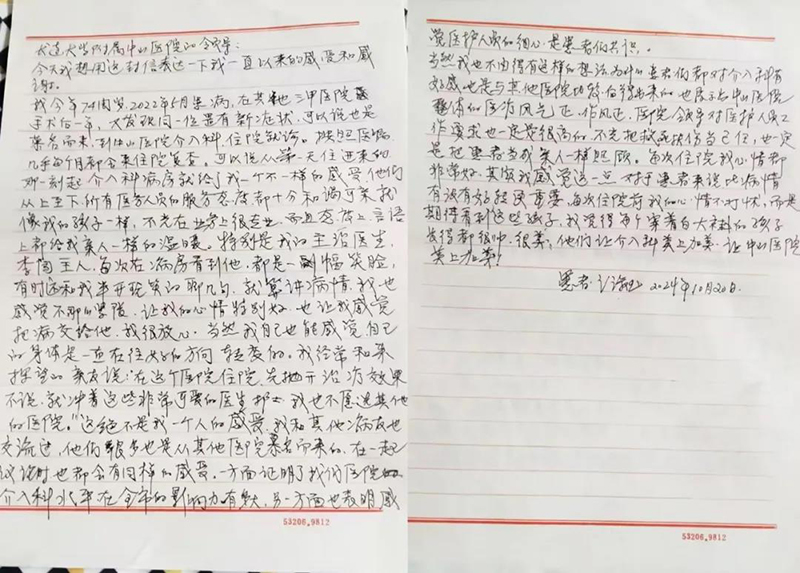 大连大学附属中山医院的领导:
今天我想用这封信表达一下我一直以来的感受和感
谢。
我今年74周岁,2022年5月患病,在其他三甲医院
手术后一年,又发现同一位置有新的症状,可以说也是
慕名而来,到中山医院介入科,住院就诊。按照医嘱,
几乎每个月都会来住院复查。可以说从第一天住进来的
那一刻起介入科病房就给了我一个不一样的感受他们
从上至下所有医务人员的服务态度都十分和谒可亲就
像我的孩子一样,不光在业务上很专业,而且态度上言语
上都给我亲人一样的温暖。特别是我的主治医生,
李国主人,每次在病房看到他,都是一副幅笑脸,
有时还和我半开玩笑的聊几句,就算讲病情,我也
感觉不那么紧张,让我的心情特别好,也让我感觉
把病交给他,我很放心。当然我自己也能感觉自己
的身体是一直在往好的方向转变的。我经常和来
探望的亲友说:"在这个医院住院,先抛开治疗效果
不说,就冲着这些非常可爱的医生护士,我也不愿选其他
的医院。"这绝不是我一个人的感受,我和其他病友也
交流过,他们很多也是从其他医院慕名而来的,在一起
议论时也都会有同样的感受。一方面证明了我们医院
介入科水平在全市的影响力有多大,另一方面也表明感
53206.9812
觉医护人员的细心是患者们共识。
当然我也不由得有这样的想法为什么患者们都对介入科有
好感也是与其他医院功夫相对得出来的也展示出中山医院
整体的医疗风气正,作风正,医院领导对医护人员工
作要求也一定是很高的,不光把救死扶伤当己任,也一定
是把患者当成亲人一样照顾。每次住院我心情都
非常好,其实我感觉这一点对于患者来说比病情
有没有好转还重要,每次住院前我的心情不对忧,而是
期待看到这些孩子,我觉得每个穿着白大褂的孩子
长得都很帅,很美,他们让介入科美上加美,让中山医院
美上加美!
患者: 2024年10月20日.
53206.9812